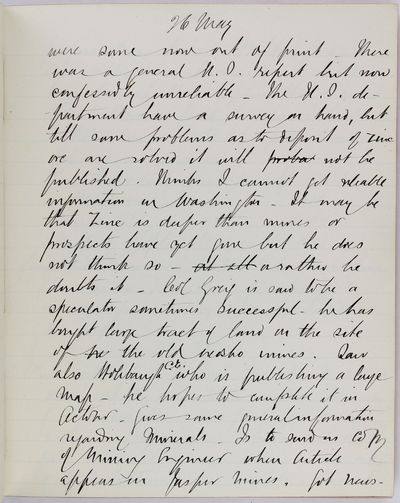 26 May
were some now out of print - There
was a general U.S. report but now
confessedly unreliable - The U.S. de-
partment have a survey on hand, but
till some problems as to deposit of zinc
ore are solved it will probab not be
published. Thinks I cannot get reliable
information in Washington - It may be
that Zinc is deeper than mines or
prospects have yet gone but he does
not think so - at all or rather he
doubts it - Col Grey is said to be a
speculator sometimes successful - he has
bought large tract of land on the site
of the the old mines. Saw
also who is publishing a large
map - he hopes to complete it in
October - gives some general information
regarding Minerals - Is to send us copy
of Mining Engineer when article
appears on Jasper mines. Got news-